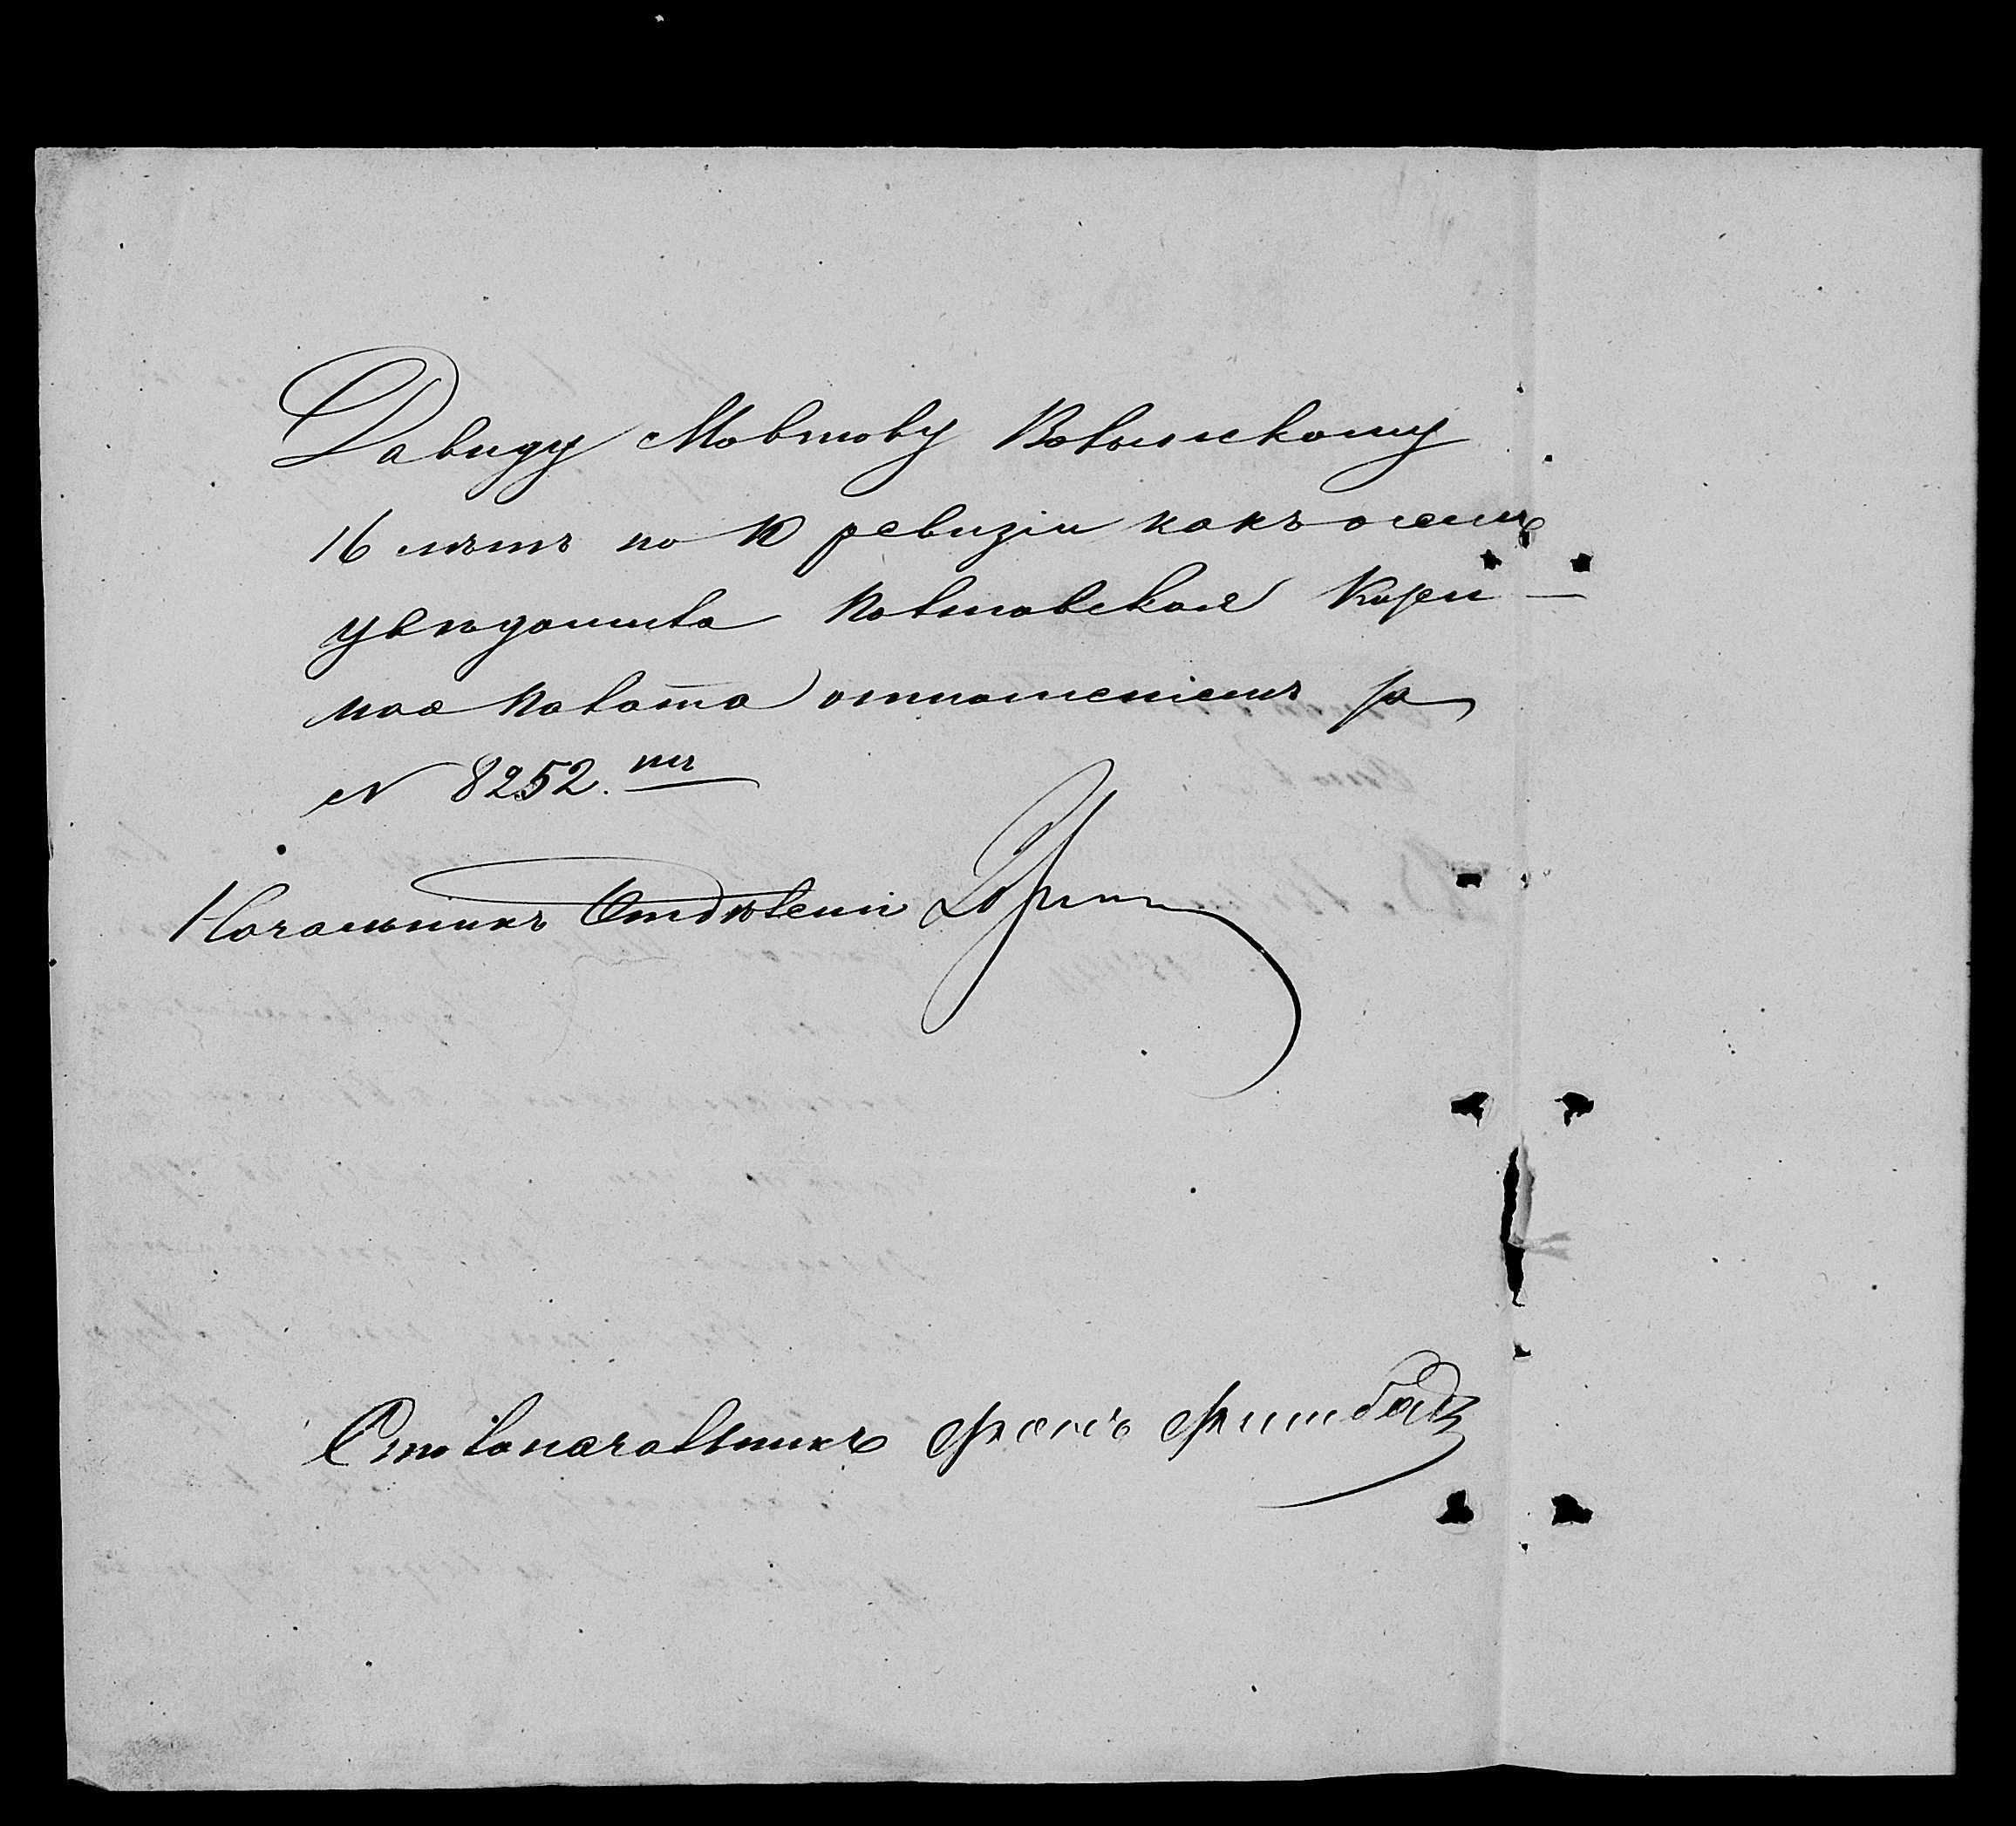 Давиду Мовшову Волынскому
16 лѣтъ по 10 ревизіи какъ о семъ
увѣдомила Полтавская Казен-
ная Палата отношеніемъ за
№ 8252.мъ
Начальникъ Отдѣленія
Столоначальникъ